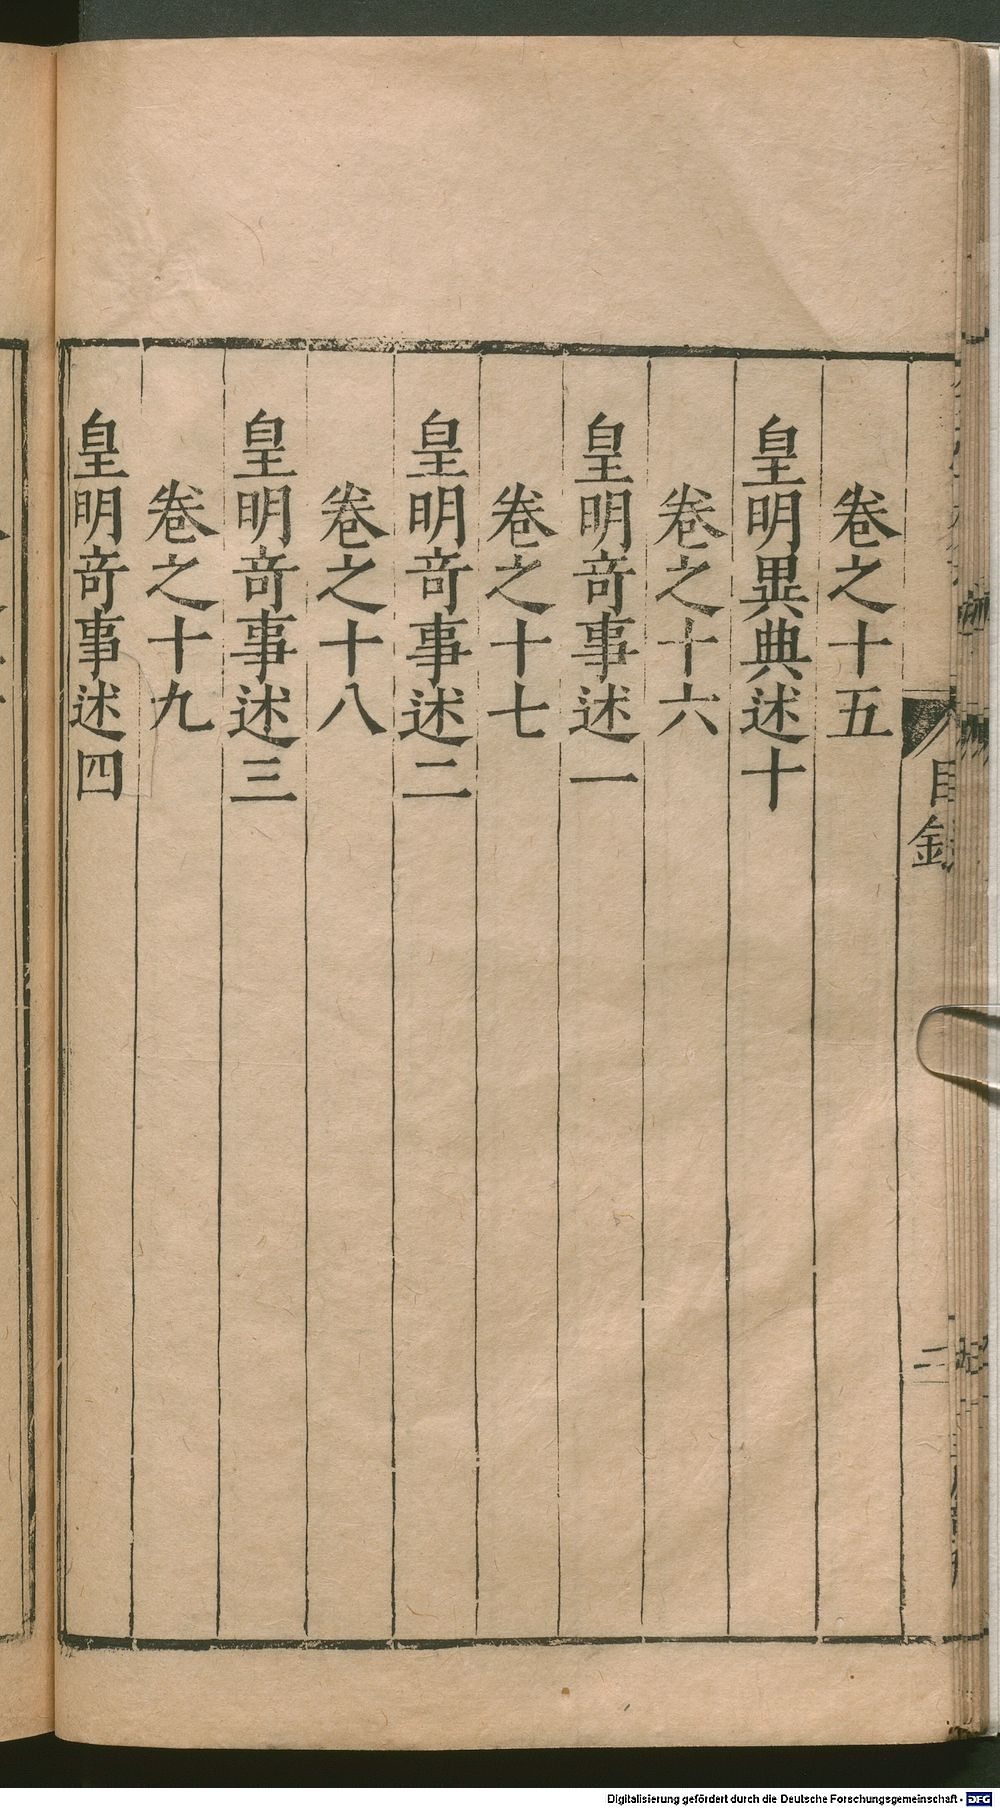 卷之十五
皇明異典述十
卷之十六
皇明竒事述一
卷之十七
皇明竒事述二
卷之十八
皇明竒事述三
卷之十九
皇明竒事述四
目錄
二
Digitalisierung gefördert durch die Deutsche Forschungsgemeinschaft - DFG